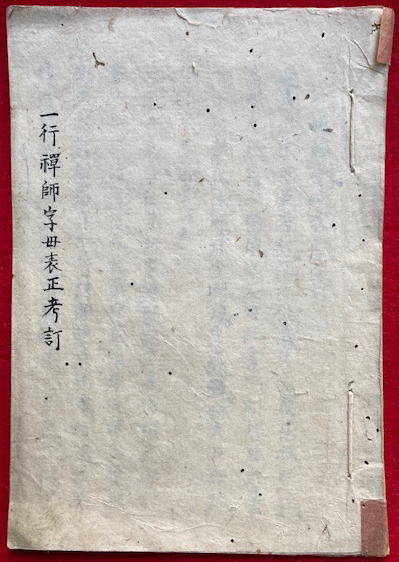 一行禪師字母表正考訂